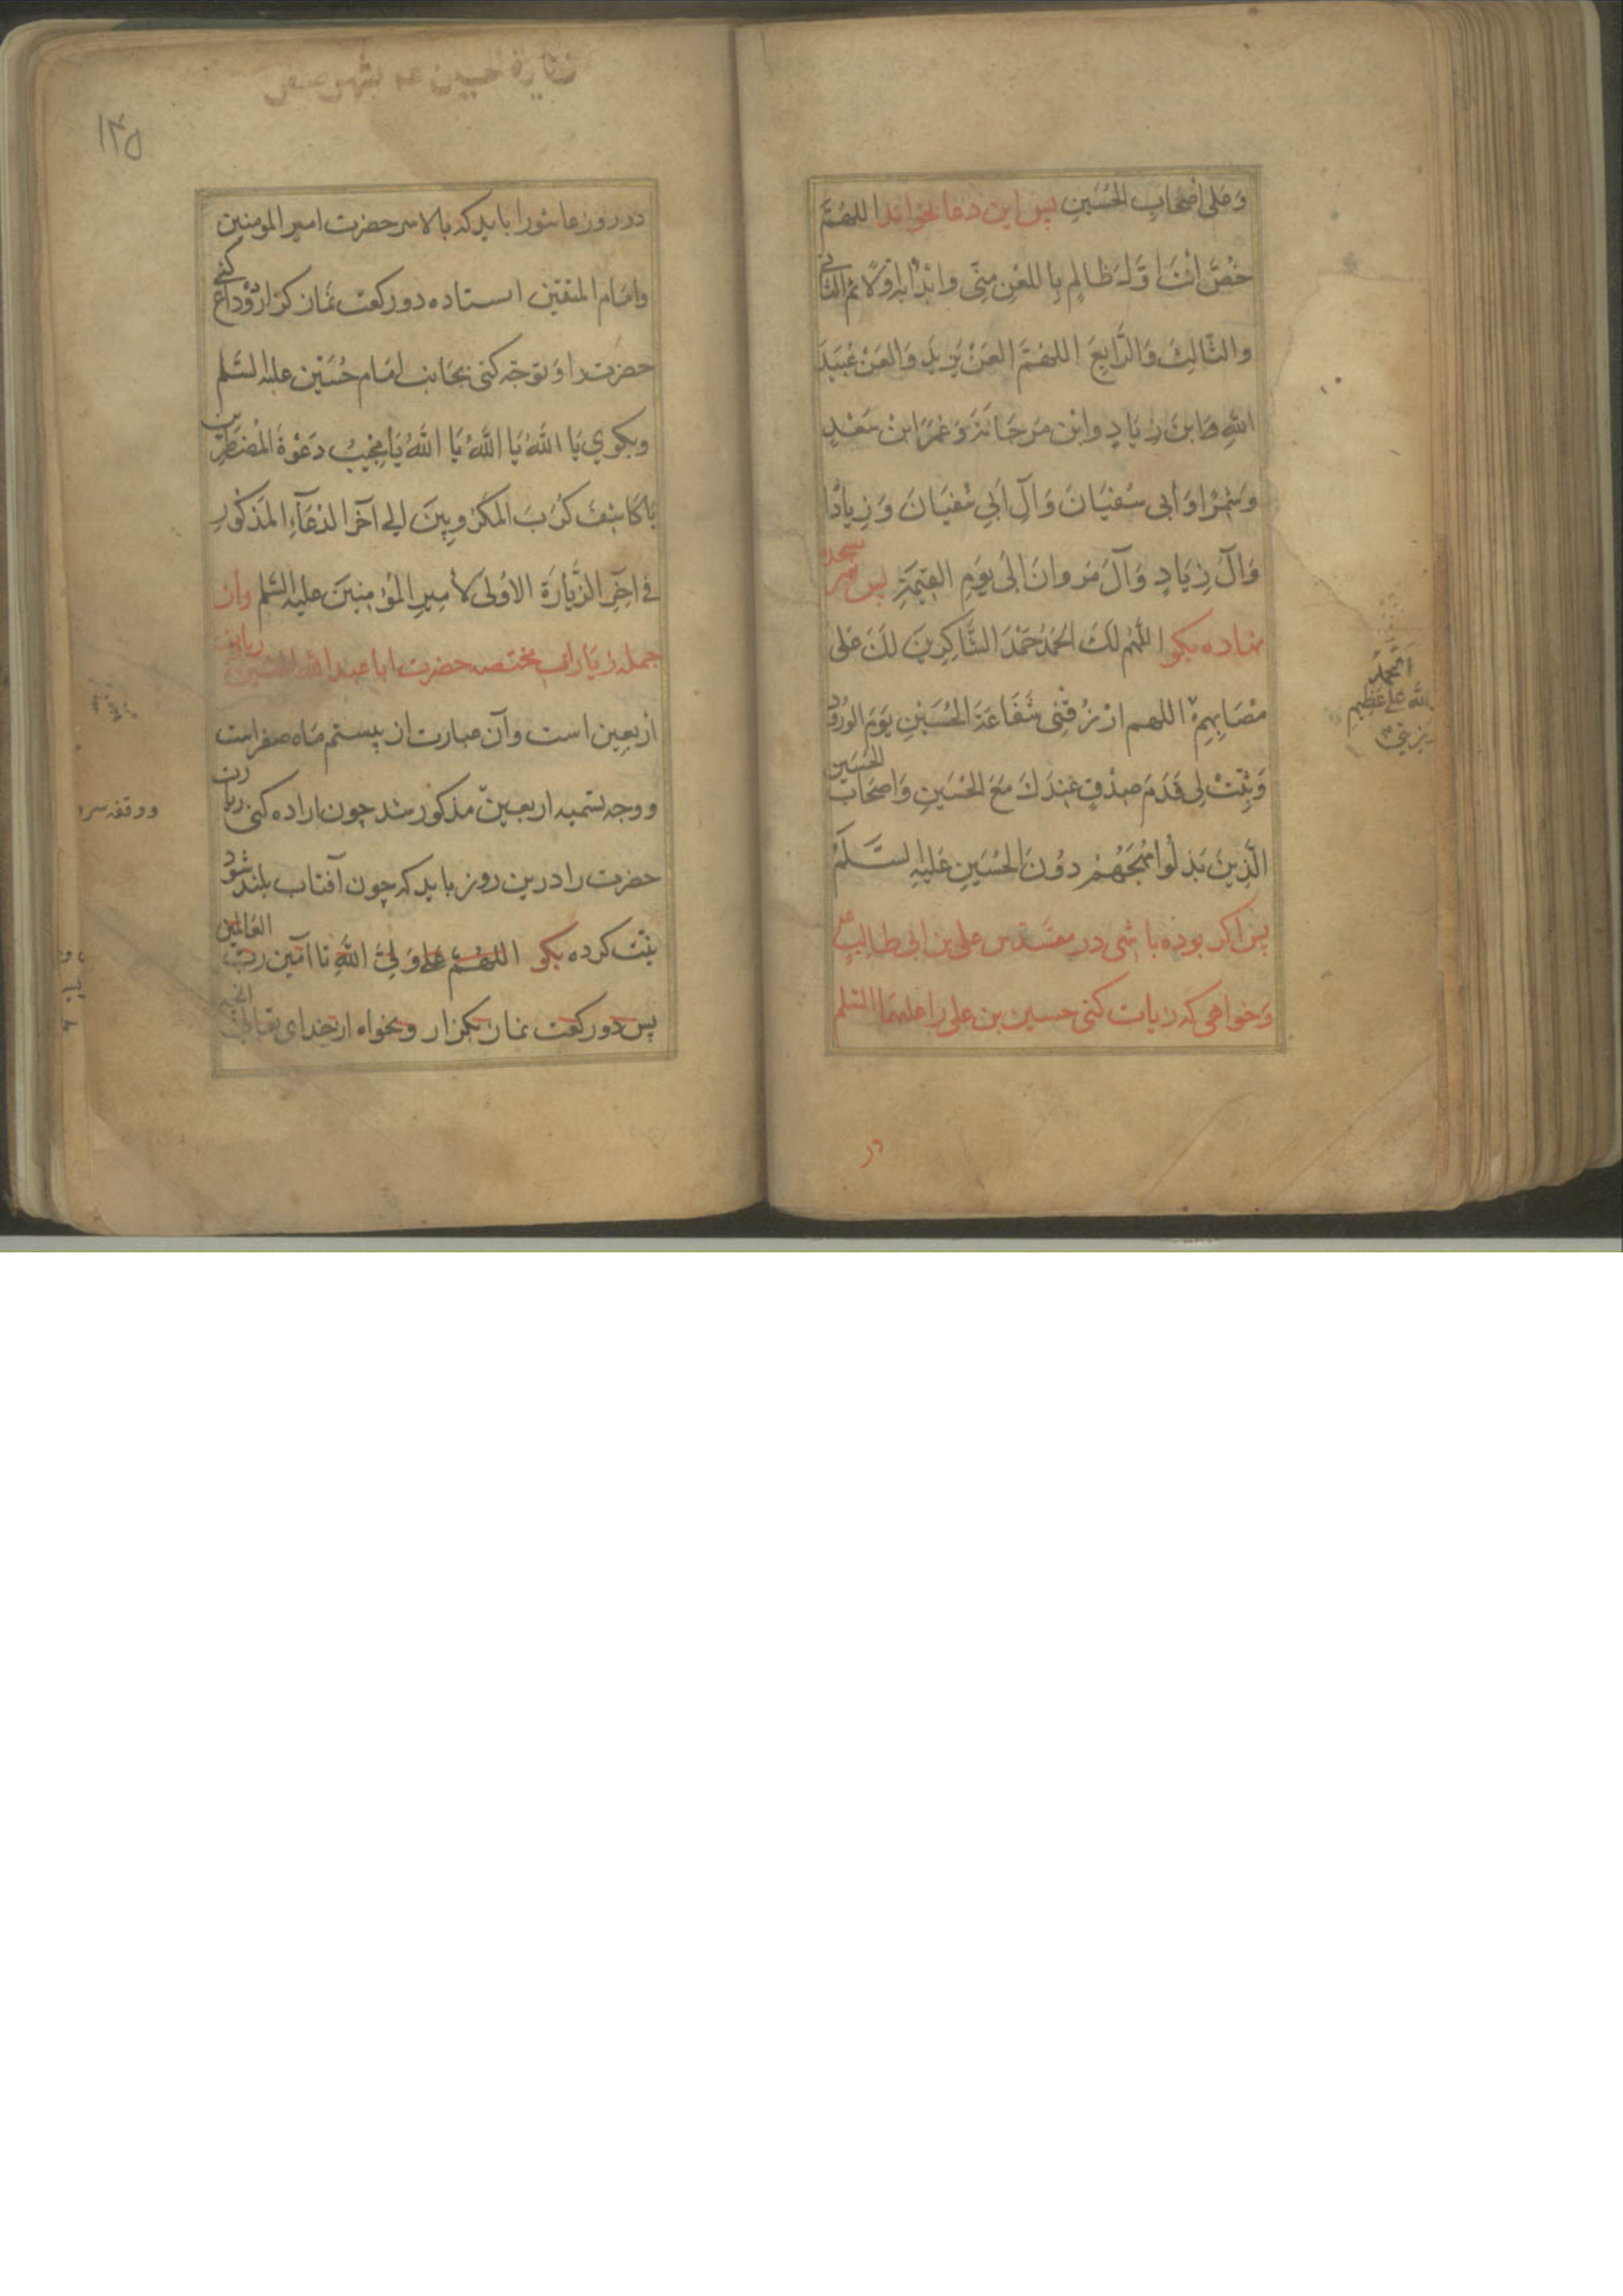 وَعَلى اَصْحابِ الحُسَيْنِ پس این دعا بخواند اللهُمَّ
خُصَّ اَنْتَ اَوَّلَ ظَالِمٍ بِاللَّعْنِ مِنّى وَابْدَأْ بِهِ اَوَّلاً ثم الثانی
والثّالِثَ وَالرّابِعَ اللهُمَّ العَنْ يَزيدَ وَالعَنْ عُبَيْدَ
اللهِ وَابنَ زِيَادٍ وابْن مَرجَانَةَ وَعُمَرَ ابْنَ سَعْدٍ
وَشِمْرًا وَ اَبى سُفيَانَ وَآلَ اَبي سُفيَانَ وَ زِيادًا
وَآلَ زِيَادٍ وَآلَ مَروانَ اِلى يَومِ القِيمَةِ پس سر بسجده
نهاده بکو اللّهُم لَكَ الحَمدُ حَمْدَ الشّاكِرينَ لَكَ عَلى
مُصَابِهِمْ اللهم ارْزُقْنى شَفَاعَةَ الحُسَيْنِ يَوْمَ الوُرُودِ
وَثَبِّتْ لِى قَدَمَ صِدْقٍ عِنْدَكَ مَعَ الحُسَينِ وَاَصحَابِ الحُسَين
الَّذينَ بَذَلُوا مُهَجَهُمْ دوُنَ الحُسَينِ عَلَيْهِ السَّلَمُ
پس اکر بوده باشی در مقدس علی بن ابی طالب ع
وَخواهی که زیارت کنی حسین بن علی را علیهما السّلم
در
الحمدُ
لله علی عظیم
رزیتی
زیارة حسین عه بشهر صفر
۱۴۵
در روز عاشورا باید که بالاسر حضرت امیر المومنین
وامام المتقین استاده دو رکعت نماز کزار ووداع کنی
حضرت را و توجّه کنی بجانب امام حُسَیْن علیه السّلم
وبکوی یَا اللّهُ یَا اللّهُ یَا اللّهُ یَا مُجیبَ دَعْوَةِ المُضْطَرّین
یا كَاشِفَ كُرَبَ المَكْرُوبِينَ الى آخر الدُعَآءِ المَذكُورِ
فى اخِرِ الزّيَارَة الاوُلى لاَمِيرِ المُؤمِنينَ عليه السّلم وان
جمله زیارات مختصه حضرت ابا عبدالله الحسین زیارت
اَربعین است وآن عبارت از بیستم ماه صفر است
ووجه تسمیه اربعین مذکور شد چون اراده کنی زیارت
حضرت را درین روز باید که چون آفتاب بلند شود
نیّت کرده بکو اللهُمّ علی وَلِىّ اللّهِ تا آمین ربّ العَالمین
پس دو رکعت نماز بکزار و بخواه از خدای تعالی
ووقفه سره